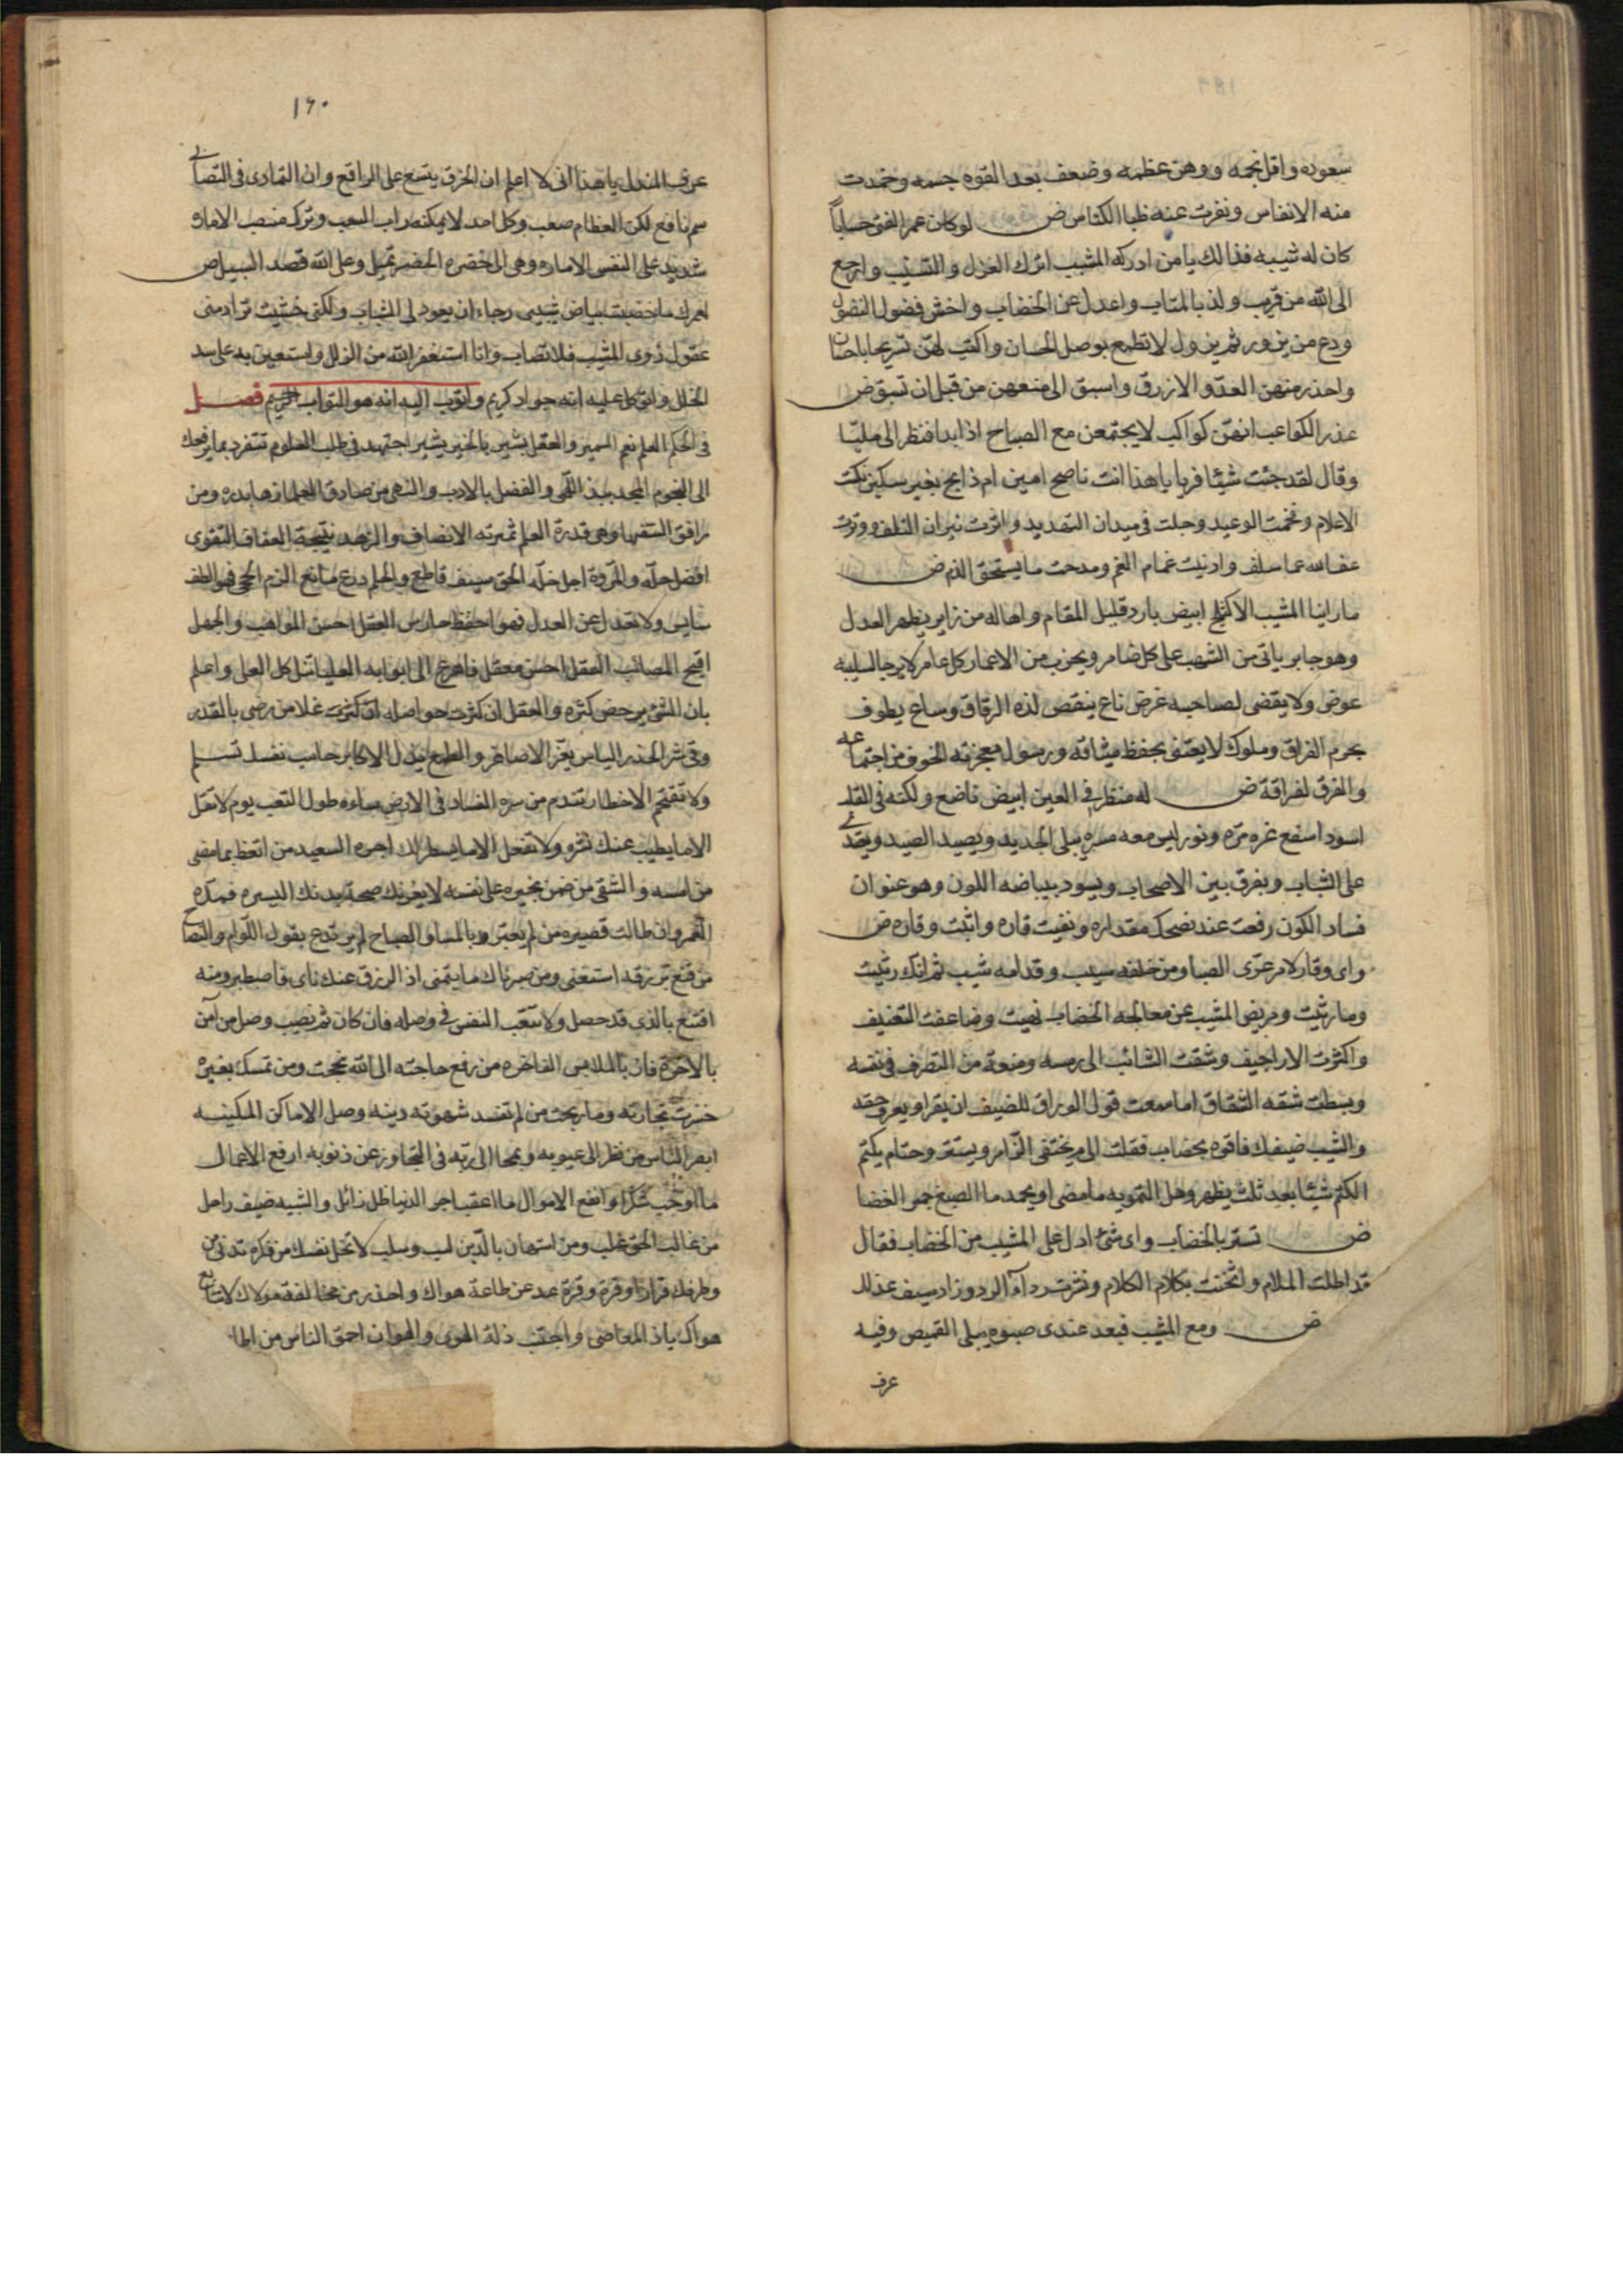 سعوده وافل نجمه ووهن عظمه وضعف بعد القوه جسمه وخمدت
منه الانفاس ونفرت عنه ظبا الكناس ض لو كان عمر الفتى حسابا
كان له شيبه فذالك يا من ادركه المشيب اترك الغزل والتشبيب وارجع
الى الله من قريب ولذ بالمتاب واعدل عن الخضاب واخش فضول النصول
ودع من يزور ثم يزول لا تطمع بوصل الحسان واكتب لهن تسريحا باحسان
واحذر منهن العدو الازرق واسبق الى منعهن من قبل ان تسبق ض
عذر الكواعب انهن كواكب لا يجتمعن مع الصباح اذا بدا فنظر الى مليا
وقال لقد جئت شيئا فريا يا هذا انت ناصح امين ام ذابح بغير سكين نكت
الاعلام وفخمت الوعيد وجلت في ميدان التهديد واثرت نيران التلف وورت
عفا الله عما سلف وادنيت غمام الغم ومدحت ما يستحق الذم ض
ما راينا المشيب الا كثلج ابيض بارد قليل المقام واها له من زاير يظهر العدل
وهو جاير ياتى من الشهب على كل ضامر ويخرب من الاعمار كل عامر لا يرجا لسلبه
عوض ولا يقضى لصاحبه غرض ناع ينغص لذه الرقاق وساع يطوف
بحرم الفراق وملوك لا يعتنى بحفظ ميثاقه ورسول معجزته الخوف من اجتماعه
والفرق لفراقه ض له منظر في العين ابيض ناصع ولكنه في القلب
اسود اسفع غره مره ونور ليس معه مسره يبلى الجديد ويصيد الصيد ويعتدى
على الشباب ويفرق بين الاصحاب ويسود ببياضه اللون وهو عنوان
فساد الكون رفعت عند نصحك مقداره ونفيت قاره واثبت وقاره ض
واى وقار لامر عرى الصبا ومن خلفه سيب وقدامه شيب ثم انك رثيت
وما رثيت ومريض المشيب عن معالجه الخضاب نهيت وضاعفت التعنيف
واكثرت الاراجيف وشقت الشائب الى رمسه ومنعته من التصرف في نفسه
وبسطت شقه الشقاق اما سمعت قول الوراق للضيف ان يقرا ويعرف حقه
والشيب ضيفك فاقره بخضاب فقلت الى م يختفى الزامر ويستتر وحتام يكتم
الكتم شيئا بعد ثلث يظهر وهل التمويه ما مضى او يخمد ما الصبغ جمر الغضا
ض تستر بالخضاب واى شئ ادل على المشيب من الخضاب فقال
قد اطلت الملام واثخنت بكلام الكلام ونثرت رداء الرد وزاد سيف عذلك
ض ومع المشيب فبعد عندى صبوه يبلى القميص وفيه
عرف
١٩٠
عرف المندل يا هذا انى لا اعلم ان الخرق يتسع على الراقع وان التمادى في التصابى
سم ناقع لكن الفطام صعب وكل احد لا يمكنه راب الشعب وترك منصب الاماره
شديد على النفس الاماره وهى الى الخضره الخضر تميل وعلى الله قصد السبيل ض
لعمرك ما خضبت بياض شيبى رجاء ان يعود لى الشباب ولكنى خشيت تراد منى
عقول ذوى المشيب فلا تصاب وانا استغفر الله من الزلل واستعين به على سد
الخلل واتوكل عليه انه جواد كريم واتوب اليه انه هو التواب الرحيم فصل
في الحكم العلم نعم السمير والعقل بشير بالخير يشير اجتهد في طلب العلوم تنفرد بما يرفعك
الى النجوم المجد يبذ اللهى والفضل بالادب والنهى من صادق العلماء زها بدره ومن
رافق السفها وهى قدره العلم ثمرته الانصاف والزهد نتيجة العفاف التقوى
افضل حله والمروة اجل خله الحق سيف قاطع والحلم درع مانع الزم الحجى فهو الطف
سايس ولا تعدل عن العدل فهو احفظ حارس العقل احسن المواهب والجهل
اقبح المصائب العقل احسن معقل فاهرع الى ابوابه العليا تنل كل العلى واعلم
بان الشئ يرخص كثره والعقل ان كثرت حواصله غلا من رضى بالقدر
وقى شر الحذر الياس يعز الاصاغر والطمع يذل الاكابر حاسب نفسك تسلم
ولا تقتحم الاخطار تندم من سره الفساد في الارض ساءه طول التعب يوم لا تقل
الا ما يطيب عنك نشره ولا تفعل الا ما يسطر لك اجره السعيد من اتعظ بما مضى
من امسه والشقى من ضن بخيره على نفسه لا يغرنك صحة بدنك اليسيره فمده
العمر وان طالت قصيره من لم يعتبر بالمسا والصباح لم يرتدع بقول اللوام والنصاح
من قنع برزقه استغنى ومن صبر نال ما يتمنى اذ الرزق عنك ناى فاصطبر ومنه
اقتنع بالذى قد حصل ولا تتعب النفس في وصله فان كان ثم نصيب وصل من آمن
بالاخرة فان بالملابس الفاخره من رفع حاجته الى الله نجحت ومن تمسك بغيره
خسرت تجارته وما ربحت من لم تفسد شهوته دينه وصل الاماكن المكينه
ابصر الناس من نظر الى عيوبه ولجا الى ربه في التجاوز عن ذنوبه ارفع الاعمال
ما اوجب شكرا وانفع الاموال ما اعقب اجر الدنيا ظل زائل والشيبه ضيف راحل
من غالب الحق غلب ومن استهان بالدين لسب وسلب لا تخل نفسك من فكره تدنى من
وطرفك قرارا وقرة وقرة عد عن طاعة هواك واحذر من مخالفة مولاك لاتباع
هواك ياذ المعاصى واجتنب ذلة الهوى والهوان احمق الناس من اطا